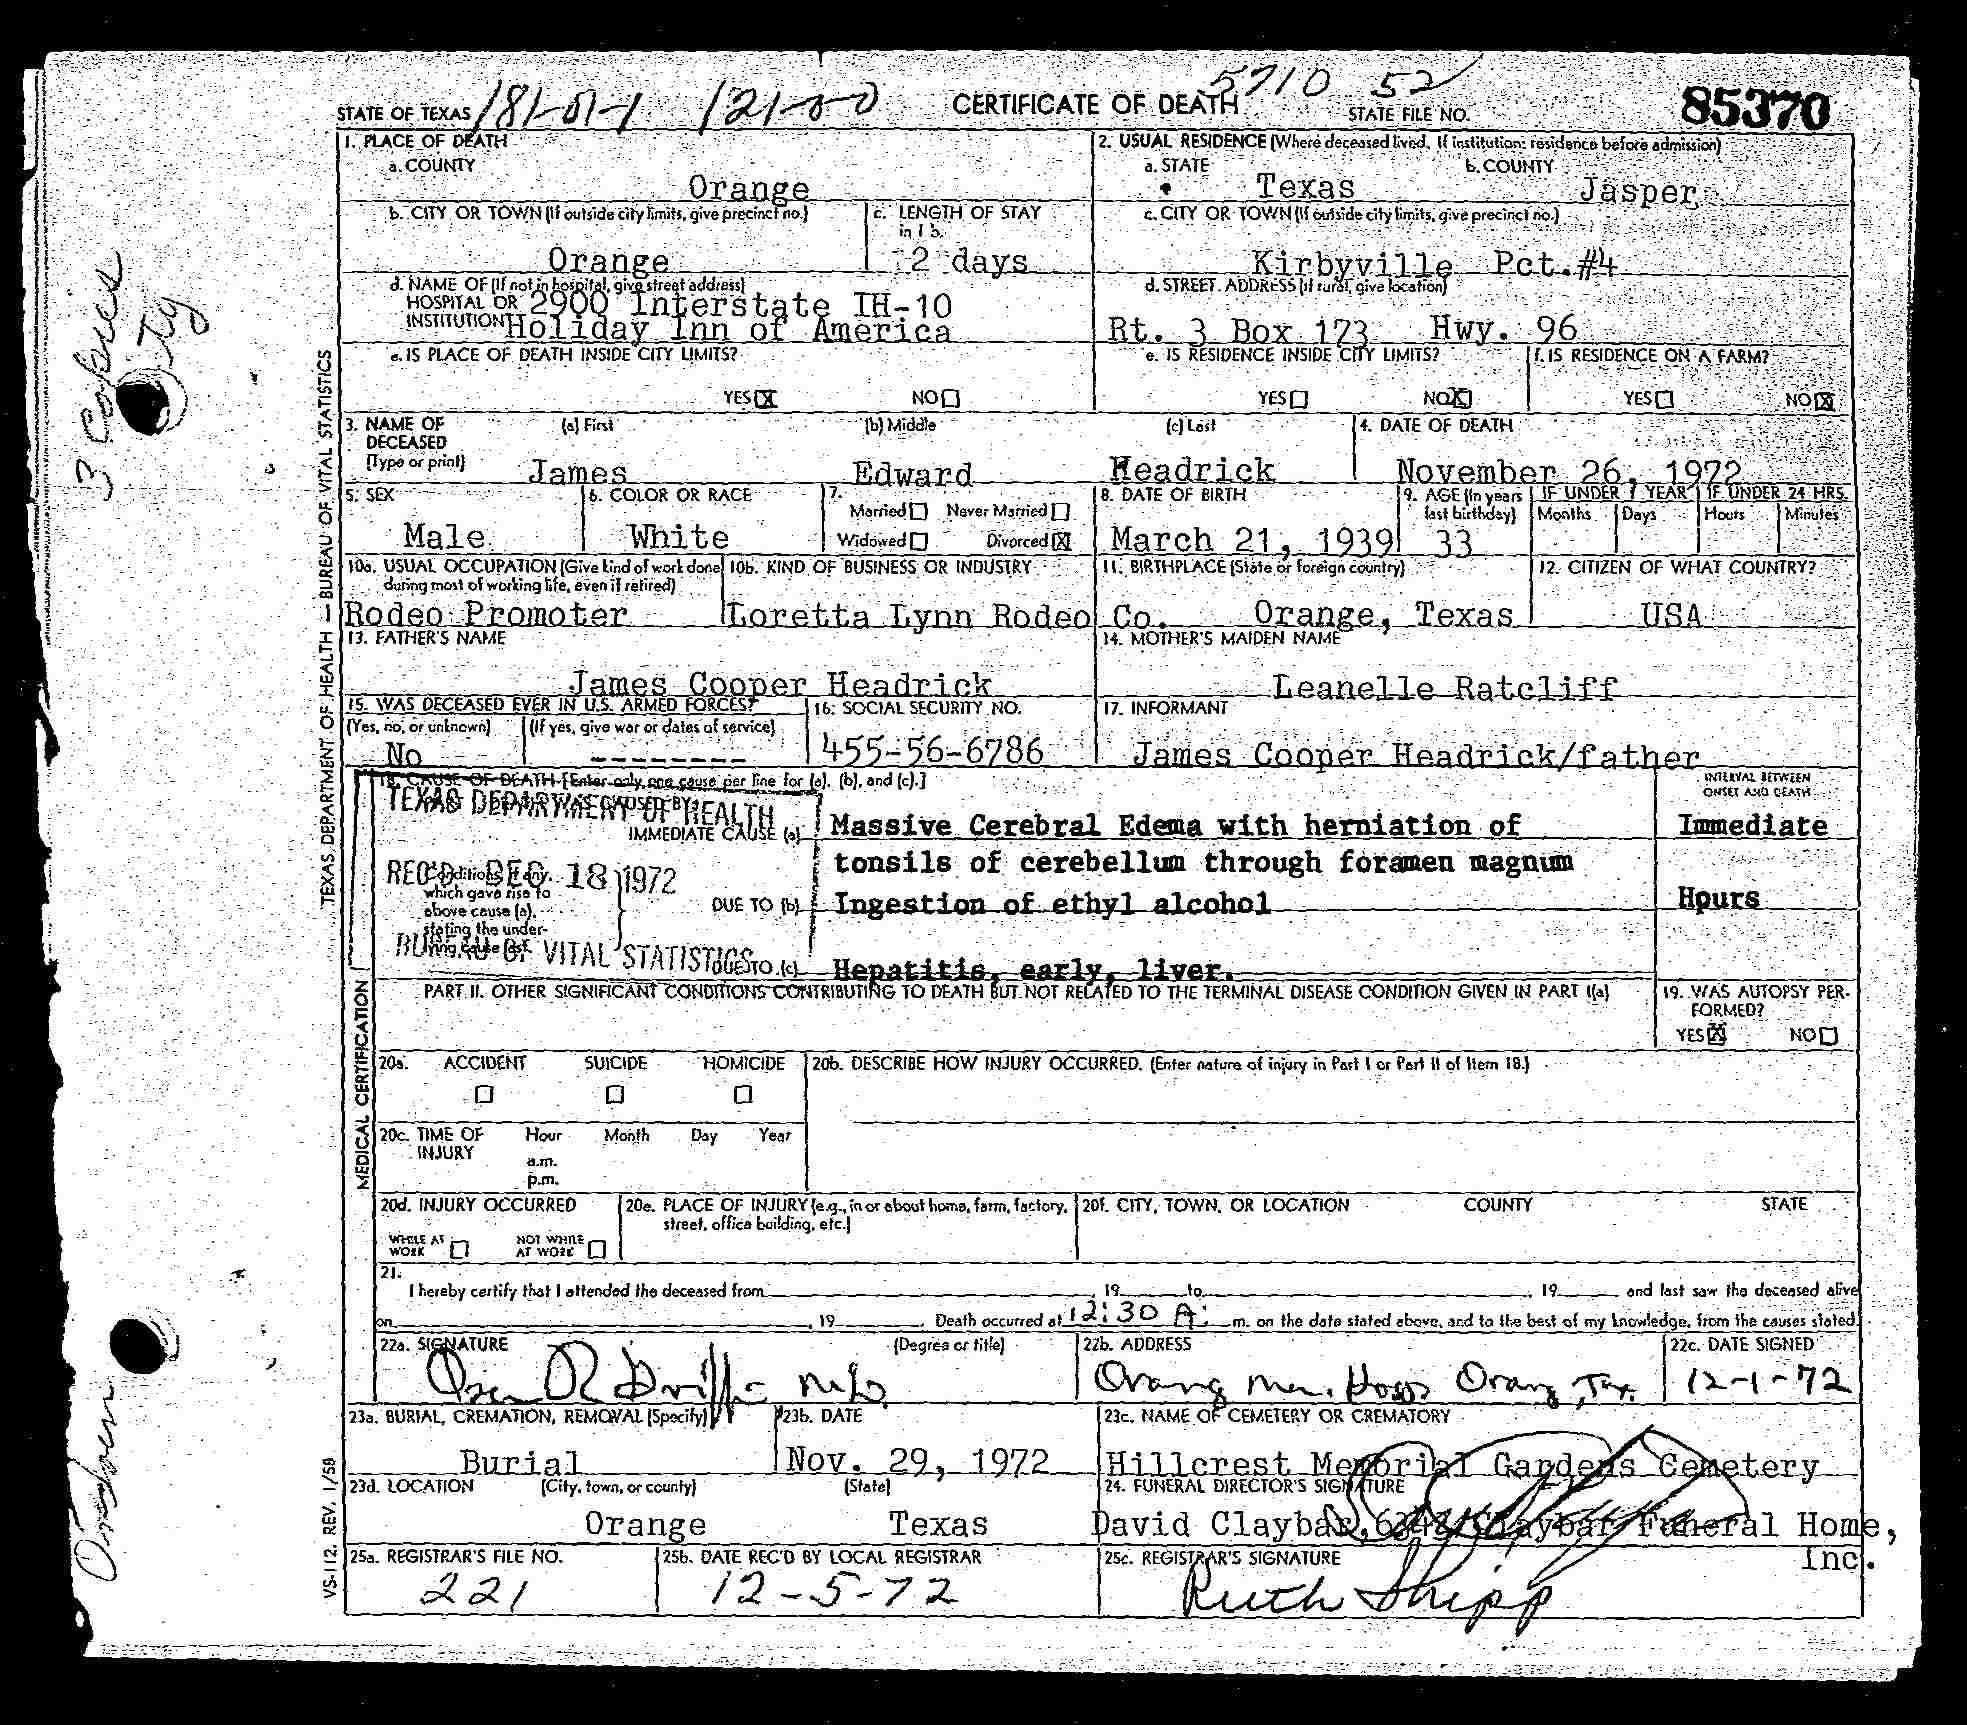 5710 52
STATE OF TEXAS 181-01-1 121-0-0 CERTIFICATE OF DEATH STATE FILE NO. 85370
1. PLACE OF DEATH
a. COUNTY
Orange
2. USUAL RESIDENCE (Where deceased lived. If institution: residence before admission)
a. STATE b. COUNTY
Texas Jasper
b. CITY OR TOWN (If outside city limits, give precinct no.)
Orange
c. LENGTH OF STAY
in 1 b.
2 days
c. CITY OR TOWN (If outside city limits, give precinct no.)
Kirbyville Pct.#4
d. NAME OF (If not in hospital, give street address)
HOSPITAL OR 2900 Interstate IH-10
INSTITUTION Holiday Inn of America
d. STREET ADDRESS (If rural, give location)
Rt. 3 Box 173 Hwy. 96
e. IS PLACE OF DEATH INSIDE CITY LIMITS?
YES X NO
e. IS RESIDENCE INSIDE CITY LIMITS?
YES NO X
f. IS RESIDENCE ON A FARM?
YES NO X
3. NAME OF (a) First (b) Middle (c) Last
DECEASED
(Type or print) James Edward Headrick
4. DATE OF DEATH
November 26, 1972
5. SEX
Male
6. COLOR OR RACE
White
7.
Married Never Married
Widowed Divorced X
8. DATE OF BIRTH
March 21, 1939
9. AGE (In years
last birthday)
33
IF UNDER 1 YEAR
Months Days
IF UNDER 24 HRS.
Hours Minutes
10a. USUAL OCCUPATION (Give kind of work done
during most of working life, even if retired)
Rodeo Promoter
10b. KIND OF BUSINESS OR INDUSTRY
Loretta Lynn Rodeo Co.
11. BIRTHPLACE (State or foreign country)
Orange, Texas
12. CITIZEN OF WHAT COUNTRY?
USA
13. FATHER'S NAME
James Cooper Headrick
14. MOTHER'S MAIDEN NAME
Leanelle Ratcliff
15. WAS DECEASED EVER IN U.S. ARMED FORCES?
(Yes, no, or unknown) (If yes, give war or dates of service)
No --------
16. SOCIAL SECURITY NO.
455-56-6786
17. INFORMANT
James Cooper Headrick/father
18. CAUSE OF DEATH [Enter only one cause per line for (a), (b), and (c).]
INTERVAL BETWEEN
ONSET AND DEATH
TEXAS DEPARTMENT OF HEALTH
REC'D DEC 18 1972
BUREAU OF VITAL STATISTICS
WAS CAUSED BY:
IMMEDIATE CAUSE (a) Massive Cerebral Edema with herniation of Immediate
tonsils of cerebellum through foramen magnum
Conditions, if any,
which gave rise to
above cause (a),
stating the under-
lying cause last.
DUE TO (b) Ingestion of ethyl alcohol Hours
DUE TO (c) Hepatitis, early, liver.
PART II. OTHER SIGNIFICANT CONDITIONS CONTRIBUTING TO DEATH BUT NOT RELATED TO THE TERMINAL DISEASE CONDITION GIVEN IN PART I(a)
19. WAS AUTOPSY PER-
FORMED?
YES X NO
20a. ACCIDENT SUICIDE HOMICIDE
20b. DESCRIBE HOW INJURY OCCURRED. (Enter nature of injury in Part I or Part II of Item 18.)
20c. TIME OF Hour Month Day Year
INJURY
a.m.
p.m.
20d. INJURY OCCURRED
WHILE AT
WORK
NOT WHILE
AT WORK
20e. PLACE OF INJURY (e.g., in or about home, farm, factory,
street, office building, etc.)
20f. CITY, TOWN, OR LOCATION COUNTY STATE
21.
I hereby certify that I attended the deceased from , 19 to , 19 and last saw the deceased alive
on , 19 . Death occurred at 12:30 A. m. on the date stated above, and to the best of my knowledge, from the causes stated.
22a. SIGNATURE (Degree or title)
22b. ADDRESS
Orange Mem. Hosp Orange, Tex.
22c. DATE SIGNED
12-1-72
23a. BURIAL, CREMATION, REMOVAL (Specify)
Burial
23b. DATE
Nov. 29, 1972
23c. NAME OF CEMETERY OR CREMATORY
Hillcrest Memorial Gardens Cemetery
23d. LOCATION (City, town, or county) (State)
Orange Texas
24. FUNERAL DIRECTOR'S SIGNATURE
David Claybar, Claybar Funeral Home,
Inc.
25a. REGISTRAR'S FILE NO.
221
25b. DATE REC'D BY LOCAL REGISTRAR
12-5-72
25c. REGISTRAR'S SIGNATURE
Ruth Shipp
TEXAS DEPARTMENT OF HEALTH — BUREAU OF VITAL STATISTICS
MEDICAL CERTIFICATION
VS-112. REV. 1/58
3 Copies